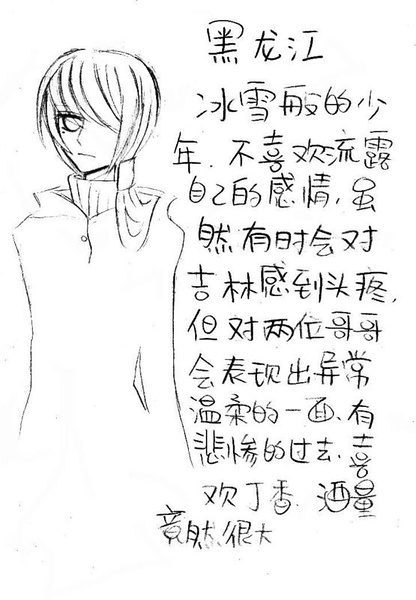 黑龙江
冰雪般的少
年.不喜欢流露
自己的感情,虽
然有时会对
吉林感到头疼,
但对两位哥哥
会表现出异常
温柔的一面、有
悲惨的过去.喜
欢丁香.酒量
竟然很大